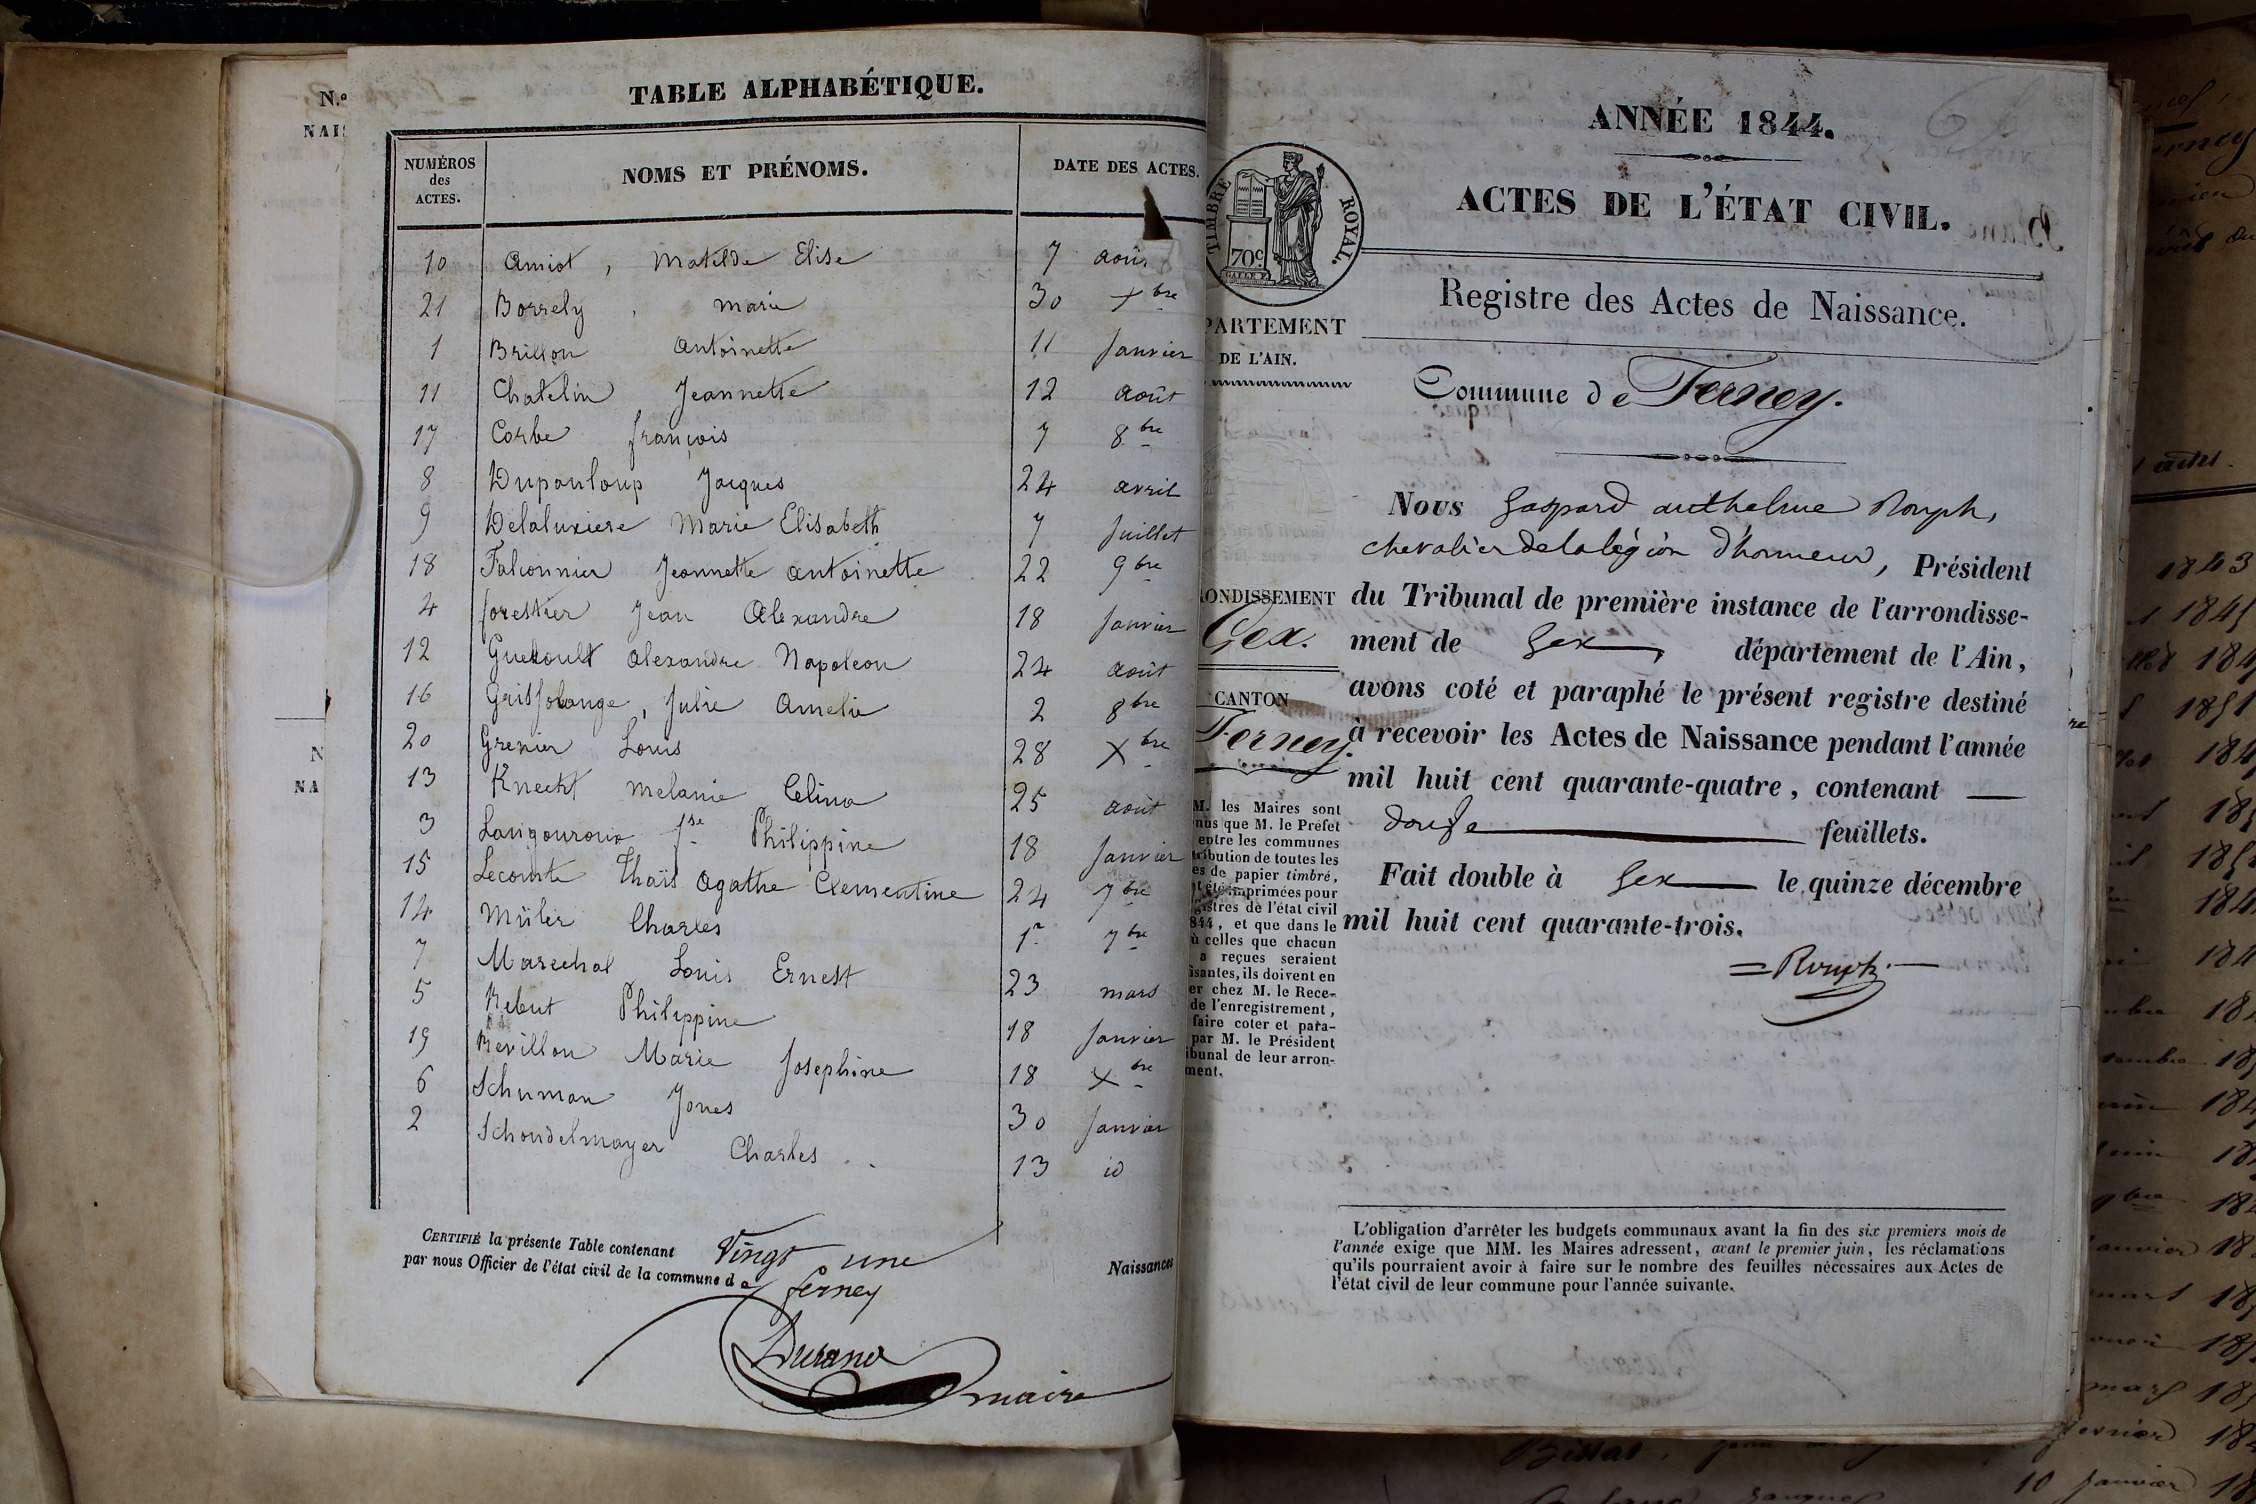 TABLE ALPHABÉTIQUE.
NUMÉROS des ACTES. NOMS ET PRÉNOMS. DATE DES ACTES.
10 Amiot, Matilde Elise 7 août
21 Borrely, marie 30 Xbre
1 Brillon Antoinette 11 Janvier
11 Chatelin Jeannette 12 août
17 Corbe françois 7 8bre
8 Dupouloup Jacques 24 avril
9 Delaluxiere Marie Elisabeth 7 Juillet
18 Falconnier Jeannette antoinette 22 9bre
4 forestier Jean Alexandre 18 Janvier
12 Alexandre Napoleon 24 août
16 Julie Amelie 2 8bre
20 Grenier Louis 28 Xbre
13 Knecht melanie Celina 25 août
3 Philippine 18 Janvier
15 Lecomte Thaïs Agathe Clementine 24 7bre
14 Müler Charles 1r 7bre
7 Marechal Louis Ernest 23 mars
5 Rebut Philippine 18 Janvier
19 Revillon Marie Josephine 18 Xbre
6 Schuman Jones 30 Janvier
2 Schoudelmayer Charles 13 id
CERTIFIÉ la présente Table contenant Vingt une Naissances
par nous Officier de l'état civil de la commune de ferney
Durand
maire
N.º
NAIS
N
NA
ANNÉE 1844.
ACTES DE L'ÉTAT CIVIL.
TIMBRE ROYAL.
70c.
Registre des Actes de Naissance.
PARTEMENT
DE L'AIN.
Commune de Ferney.
Nous Gaspard anthelme Rouph,
chevalier de la légion d'honneur, Président
du Tribunal de première instance de l'arrondisse-
ment de Gex, département de l'Ain,
avons coté et paraphé le présent registre destiné
à recevoir les Actes de Naissance pendant l'année
mil huit cent quarante-quatre, contenant
douze feuillets.
Fait double à Gex le quinze décembre
mil huit cent quarante-trois.
Rouph
RONDISSEMENT
Gex.
CANTON
Ferney.
M. les Maires sont
nus que M. le Préfet
entre les communes
tribution de toutes les
es de papier timbré,
t été imprimées pour
gistres de l'état civil
844, et que dans le
ù celles que chacun
a reçues seraient
isantes, ils doivent en
er chez M. le Rece-
de l'enregistrement,
faire coter et para-
par M. le Président
ibunal de leur arron-
ment.
L'obligation d'arrêter les budgets communaux avant la fin des six premiers mois de
l'année exige que MM. les Maires adressent, avant le premier juin, les réclamations
qu'ils pourraient avoir à faire sur le nombre des feuilles nécessaires aux Actes de
l'état civil de leur commune pour l'année suivante.
actes.
1843
10 Janvier